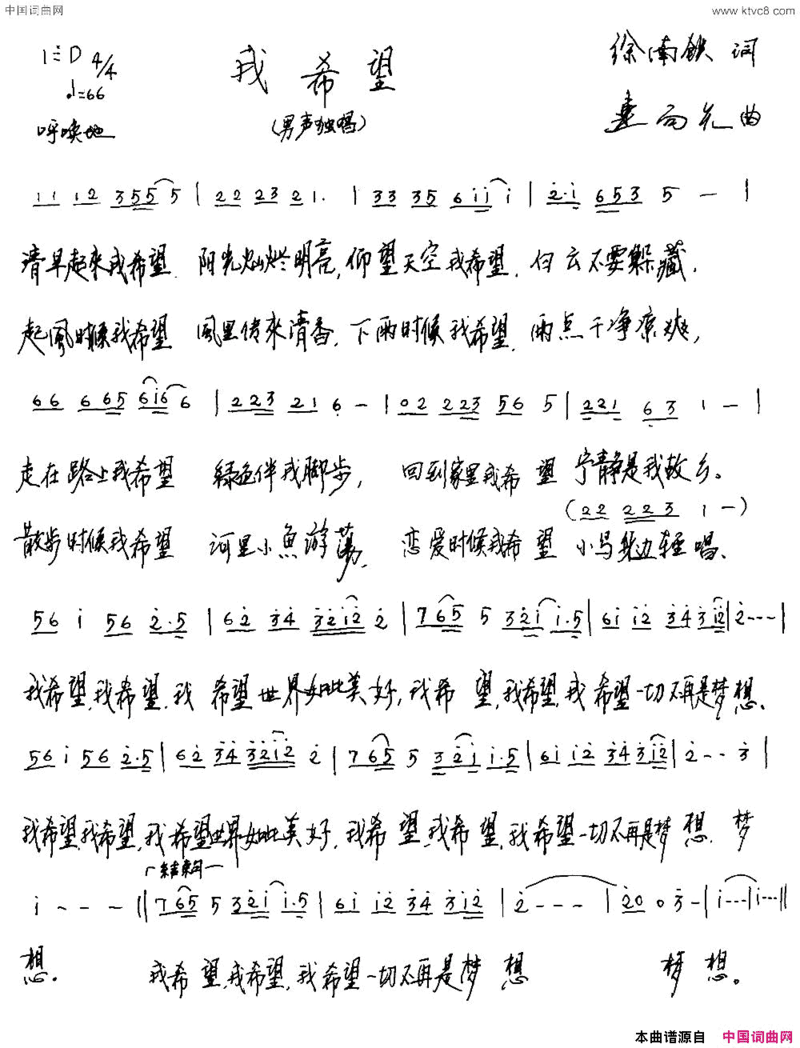 中国词曲网
www.ktvc8.com
1=D 4/4
♩=66
呼唤地
我希望
(男声独唱)
徐南铁 词
曲
11 12 3555 | 22 23 21. | 33 35 6i i i | 2̇·i̇ 653 5 — |
清早起来我希望. 阳光灿烂明亮, 仰望天空我希望. 白云不要躲藏.
起風时候我希望 風里传来清香, 下雨时候我希望, 雨点干净凉爽,
66 665 6i66 | 223 21 6 — | 02 223 56 5 | 221 63 1 — |
走在路上我希望 绿色伴我脚步, 回到家里我希望 宁静是我故乡。
(22 223 1 —)
散步时候我希望 河里小魚游荡, 恋爱时候我希望 小鸟身边轻唱、
56 i̇ 56 2̇·5 | 62̇ 3̇4̇ 3̇2̇i̇2̇ 2̇ | 765 5 3̇2̇i̇ i̇·5 | 6i̇ i̇2̇ 3̇4̇3̇i̇2̇ | 2̇ - - - |
我希望,我希望,我希望世界如此美好,我希望,我希望,我希望一切不再是梦想、
56 i̇ 56 2̇·5 | 62̇ 3̇4̇ 3̇2̇i̇2̇ 2̇ | 765 5 3̇2̇i̇ i̇·5 | 6i̇ i̇2̇ 3̇4̇3̇i̇2̇ | 2̇ - - 3̇ |
我希望,我希望,我希望世界如此美好,我希望,我希望,我希望一切不再是梦想. 梦
结束句
i̇ - - - :|| 765 5 3̇2̇i̇ i̇·5 | 6i̇ i̇2̇ 3̇4̇3̇i̇2̇ | 2̇ - - - | 2̇0 0 3̇ - | i̇ - - - | i̇ - - - ||
想. 我希望,我希望,我希望一切不再是梦想 梦想。
本曲谱源自 中国词曲网